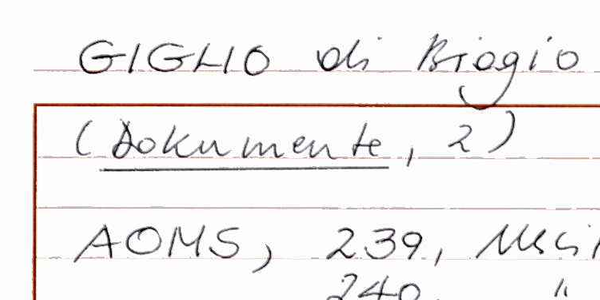 GIGLIO di Biagio
(Dokumente, 2)
AOMS, 239,
240, "